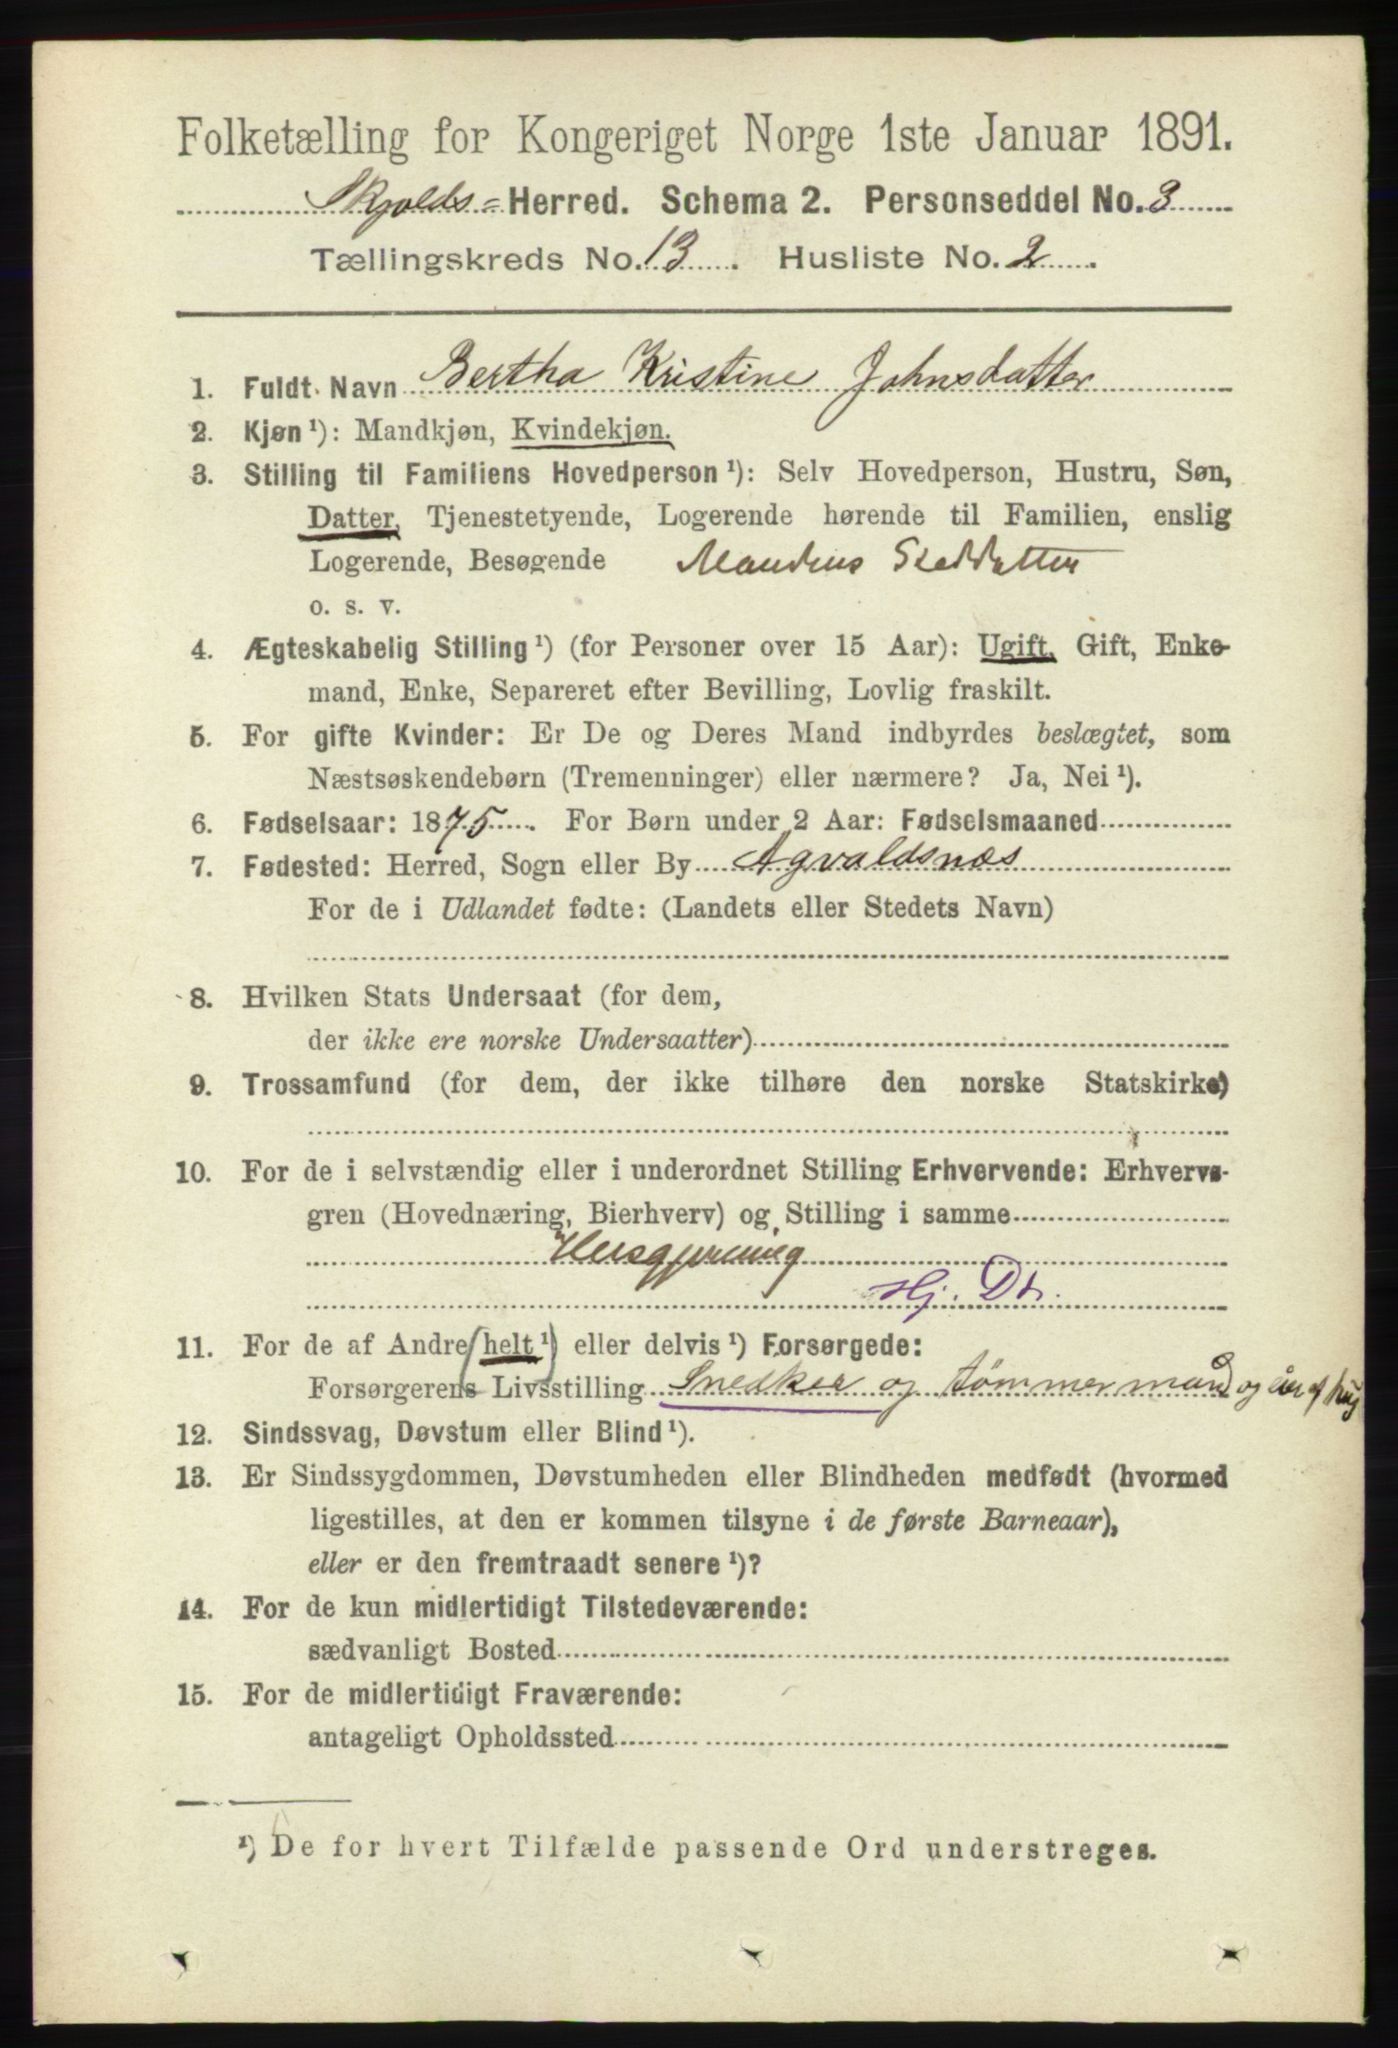 Folketælling for Kongeriget Norge 1ste Januar 1891.
Skjolds= Herred. Schema 2. Personseddel No. 3
Tællingskreds No. 13. Husliste No. 2.
1. Fuldt Navn Bertha Kristine Johnsdatter
2. Kjøn ¹): Mandkjøn, Kvindekjøn.
3. Stilling til Familiens Hovedperson ¹): Selv Hovedperson, Hustru, Søn,
Datter, Tjenestetyende, Logerende hørende til Familien, enslig
Logerende, Besøgende Mandens Steddatter
o. s. v.
4. Ægteskabelig Stilling ¹) (for Personer over 15 Aar): Ugift, Gift, Enke-
mand, Enke, Separeret efter Bevilling, Lovlig fraskilt.
5. For gifte Kvinder: Er De og Deres Mand indbyrdes beslægtet, som
Næstsøskendebørn (Tremenninger) eller nærmere? Ja, Nei ¹).
6. Fødselsaar: 1875. For Børn under 2 Aar: Fødselsmaaned
7. Fødested: Herred, Sogn eller By Agvaldsnæs
For de i Udlandet fødte: (Landets eller Stedets Navn)
8. Hvilken Stats Undersaat (for dem,
der ikke ere norske Undersaatter)
9. Trossamfund (for dem, der ikke tilhøre den norske Statskirke)
10. For de i selvstændig eller i underordnet Stilling Erhvervende: Erhvervs-
gren (Hovednæring, Bierhverv) og Stilling i samme
Husgjerning
Hj. Dt.
11. For de af Andre (helt ¹) eller delvis ¹) Forsørgede:
Forsørgerens Livsstilling Snedker og tømmermand og
12. Sindssvag, Døvstum eller Blind ¹).
13. Er Sindssygdommen, Døvstumheden eller Blindheden medfødt (hvormed
ligestilles, at den er kommen tilsyne i de første Barneaar),
eller er den fremtraadt senere ¹)?
14. For de kun midlertidigt Tilstedeværende:
sædvanligt Bosted
15. For de midlertidigt Fraværende:
antageligt Opholdssted
¹) De for hvert Tilfælde passende Ord understreges.